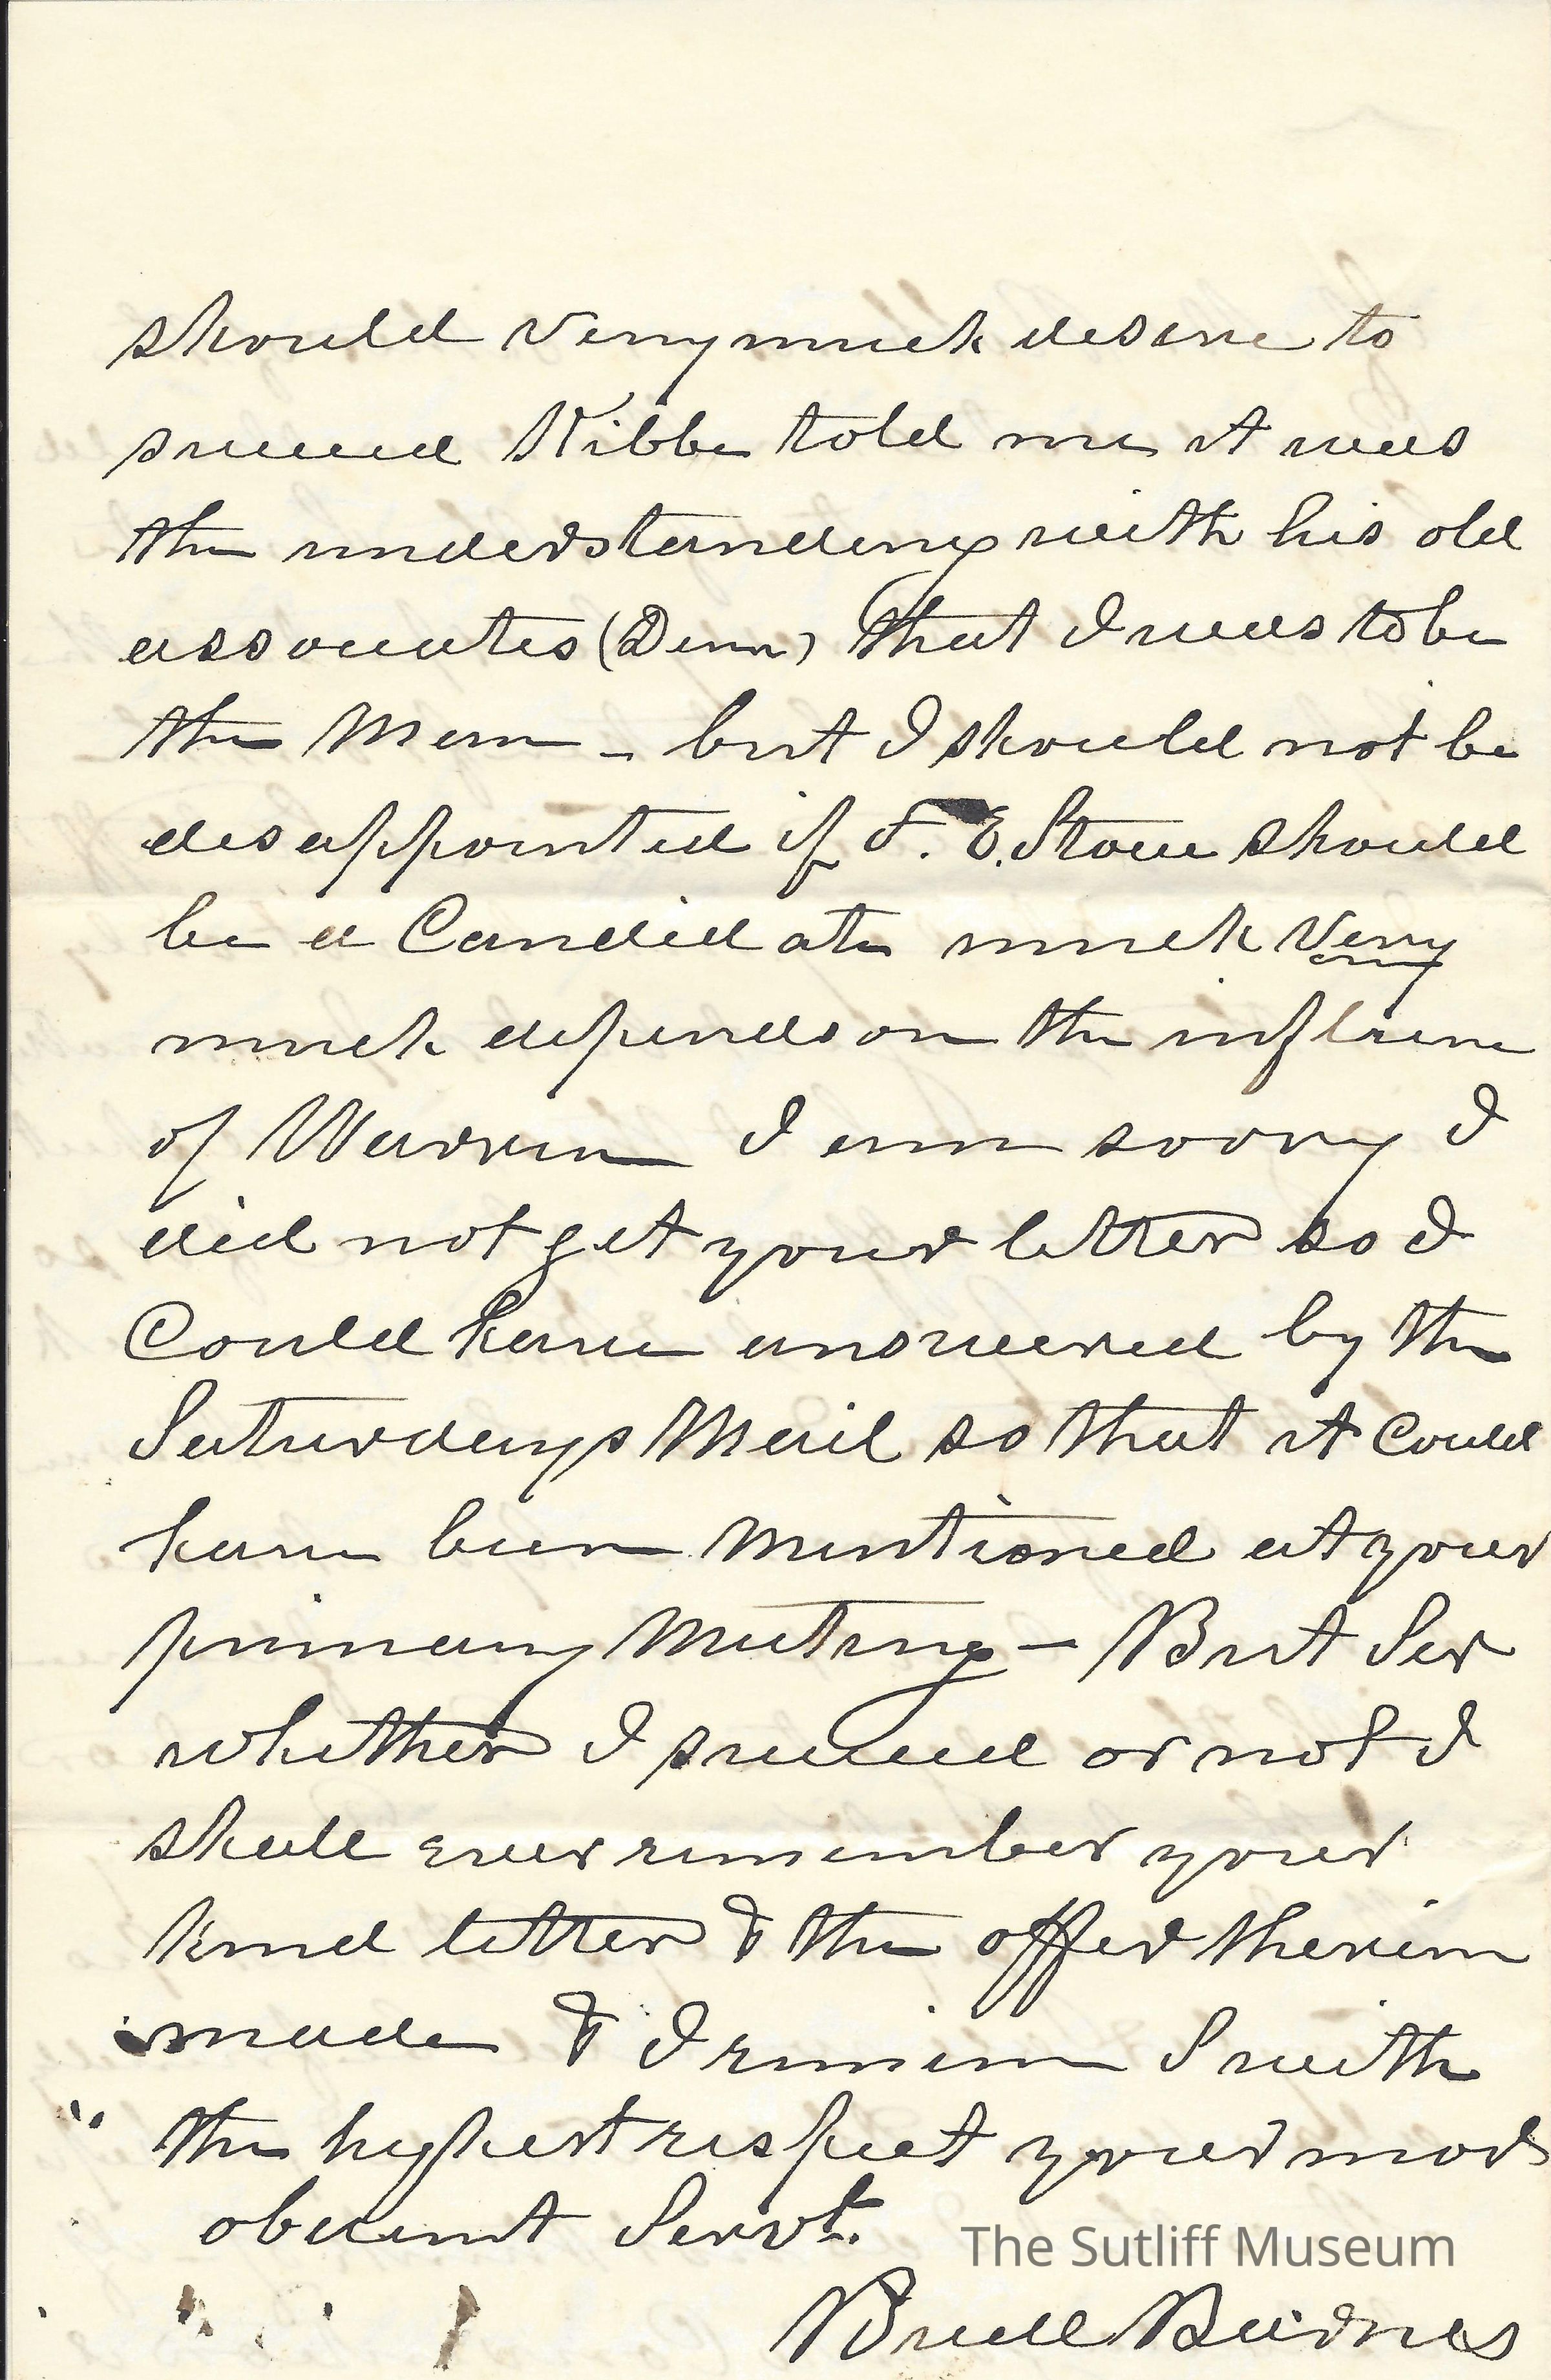 should very much desire to
succeed Kibbe told me it was
the understanding with his old
associates (Dem) that I was to be
the Man - but I should not be
disappointed if F. E. Stowe should
be a Candidate much very
much depends on the influence
of Warren I am sorry I
did not get your letter so I
Could have answered by the
Saturdays Mail so that it Could
have been Mentioned at your
primary Meeting - But Ser
whether I succeed or not I
shall ever remember your
kind letter & the offer therein
made & I remain S with
the highest respect your mos
obedient Servt.
The Sutliff Museum
Buell Barnes